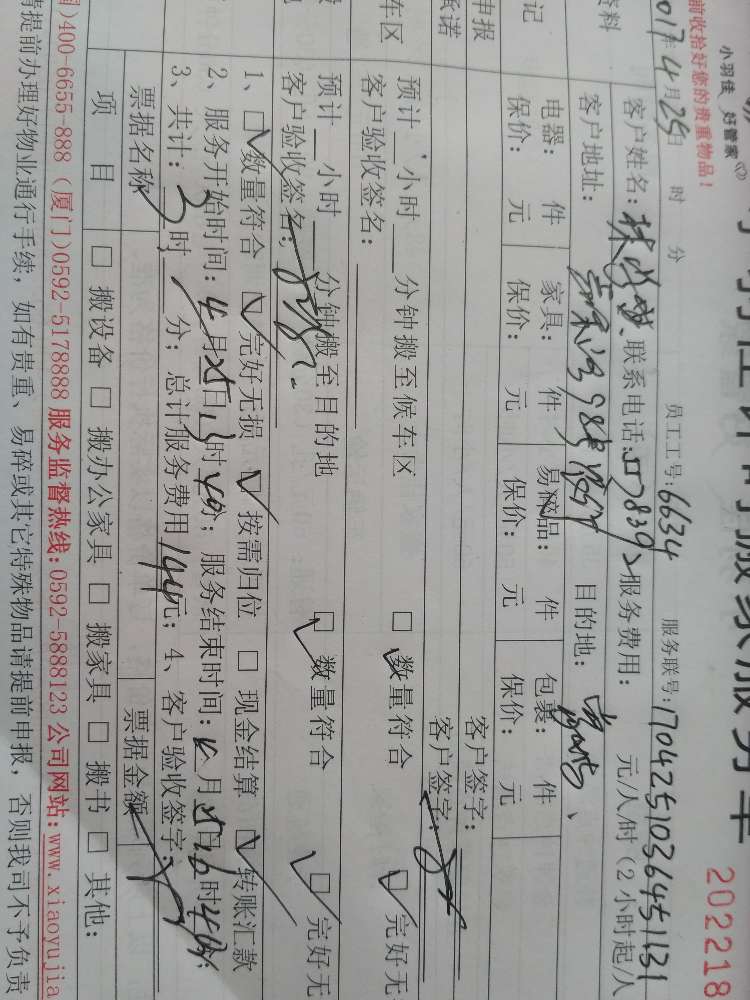 小羽佳 好管家
202218
前收拾好您的贵重物品！
017年4月25日 时 分 员工工号：6634 服务联号：1704251036451131
资料 客户姓名： 联系电话： 服务费用： 元/人/时（2小时起/人
客户地址： 目的地：
记 电器： 件 家具： 件 易碎品： 件 包裹： 件
保价： 元 保价： 元 保价： 元 保价： 元
申报 客户签字：
承诺 客户签字：
车区 预计 小时 分钟搬至候车区 □ 数量符合 □ 完好无
客户验收签名：
预计 小时 分钟搬至目的地 □ 数量符合 □ 完好无
客户验收签名：
1、□ 数量符合 □ 完好无损 □ 按需归位 □ 现金结算 □ 转账汇款
2、服务开始时间：4月25日13时40分；服务结束时间：4月25日16时40分；
3、共计：3时 分；总计服务费用144元；4、客户验收签字：
票据名称 票据金额
项 目 □ 搬设备 □ 搬办公家具 □ 搬家具 □ 搬书 □ 其他：
)400-6655-888 (厦门)0592-5178888 服务监督热线：0592-5888123 公司网站：www.xiaoyujia
请提前办理好物业通行手续，如有贵重、易碎或其它特殊物品请提前申报，否则我司不予负责